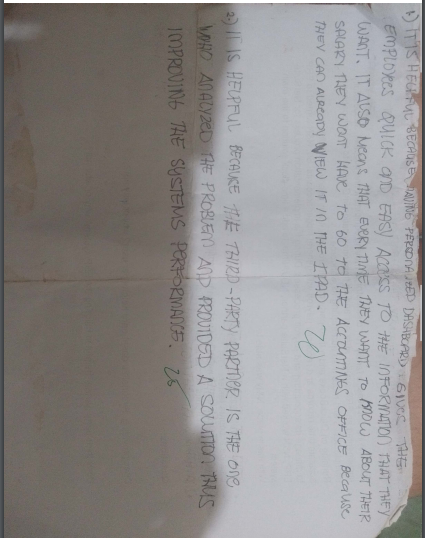 1) IT IS HELPFUL BECAUSE HAVING PERSONALIZED DASHBOARD GIVES THE
EMPLOYEES QUICK AND EASY ACCESS TO THE INFORMATION THAT THEY
WANT. IT ALSO MEANS THAT EVERYTIME THEY WANT TO KNOW ABOUT THEIR
SALARY THEY WONT HAVE TO GO TO THE ACCOUTINGS OFFICE BECAUSE
THEY CAN ALREADY VIEW IT IN THE IPAD.
2) IT IS HELPFUL BECAUSE THE THIRD-PARTY PARTNER IS THE ONE
WHO ANALYZED THE PROBLEM AND PROVIDED A SOLUTION THUS
IMPROVING THE SYSTEMS PERFORMANCE.